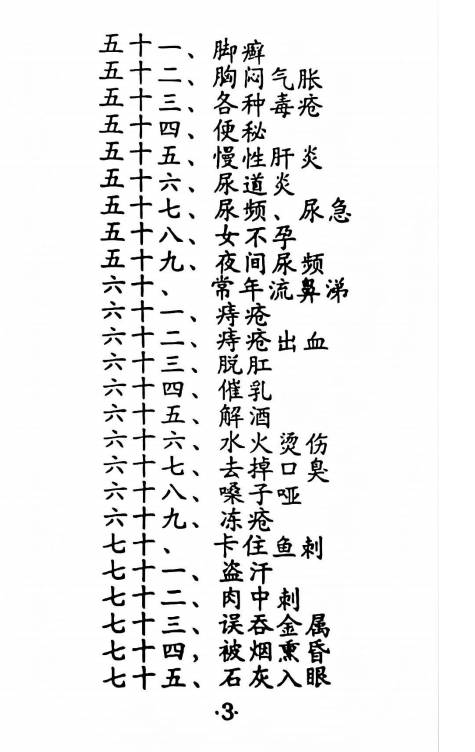 五十一、脚癣
五十二、胸闷气胀
五十三、各种毒疮
五十四、便秘
五十五、慢性肝炎
五十六、尿道炎
五十七、尿频、尿急
五十八、女不孕
五十九、夜间尿频
六十、常年流鼻涕
六十一、痔疮
六十二、痔疮出血
六十三、脱肛
六十四、催乳
六十五、解酒
六十六、水火烫伤
六十七、去掉口臭
六十八、嗓子哑
六十九、冻疮
七十、卡住鱼刺
七十一、盗汗
七十二、肉中刺
七十三、误吞金属
七十四，被烟熏昏
七十五、石灰入眼
·3·